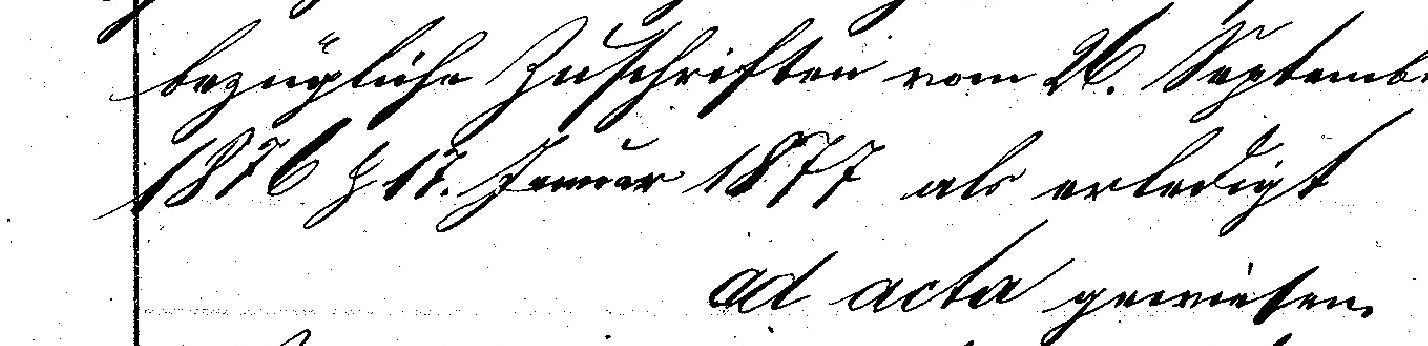 bezügliche Zuschriften vom 26. Septemb
1876 & 17. Januar 1877 als erledigt
ad acta gewiesen.